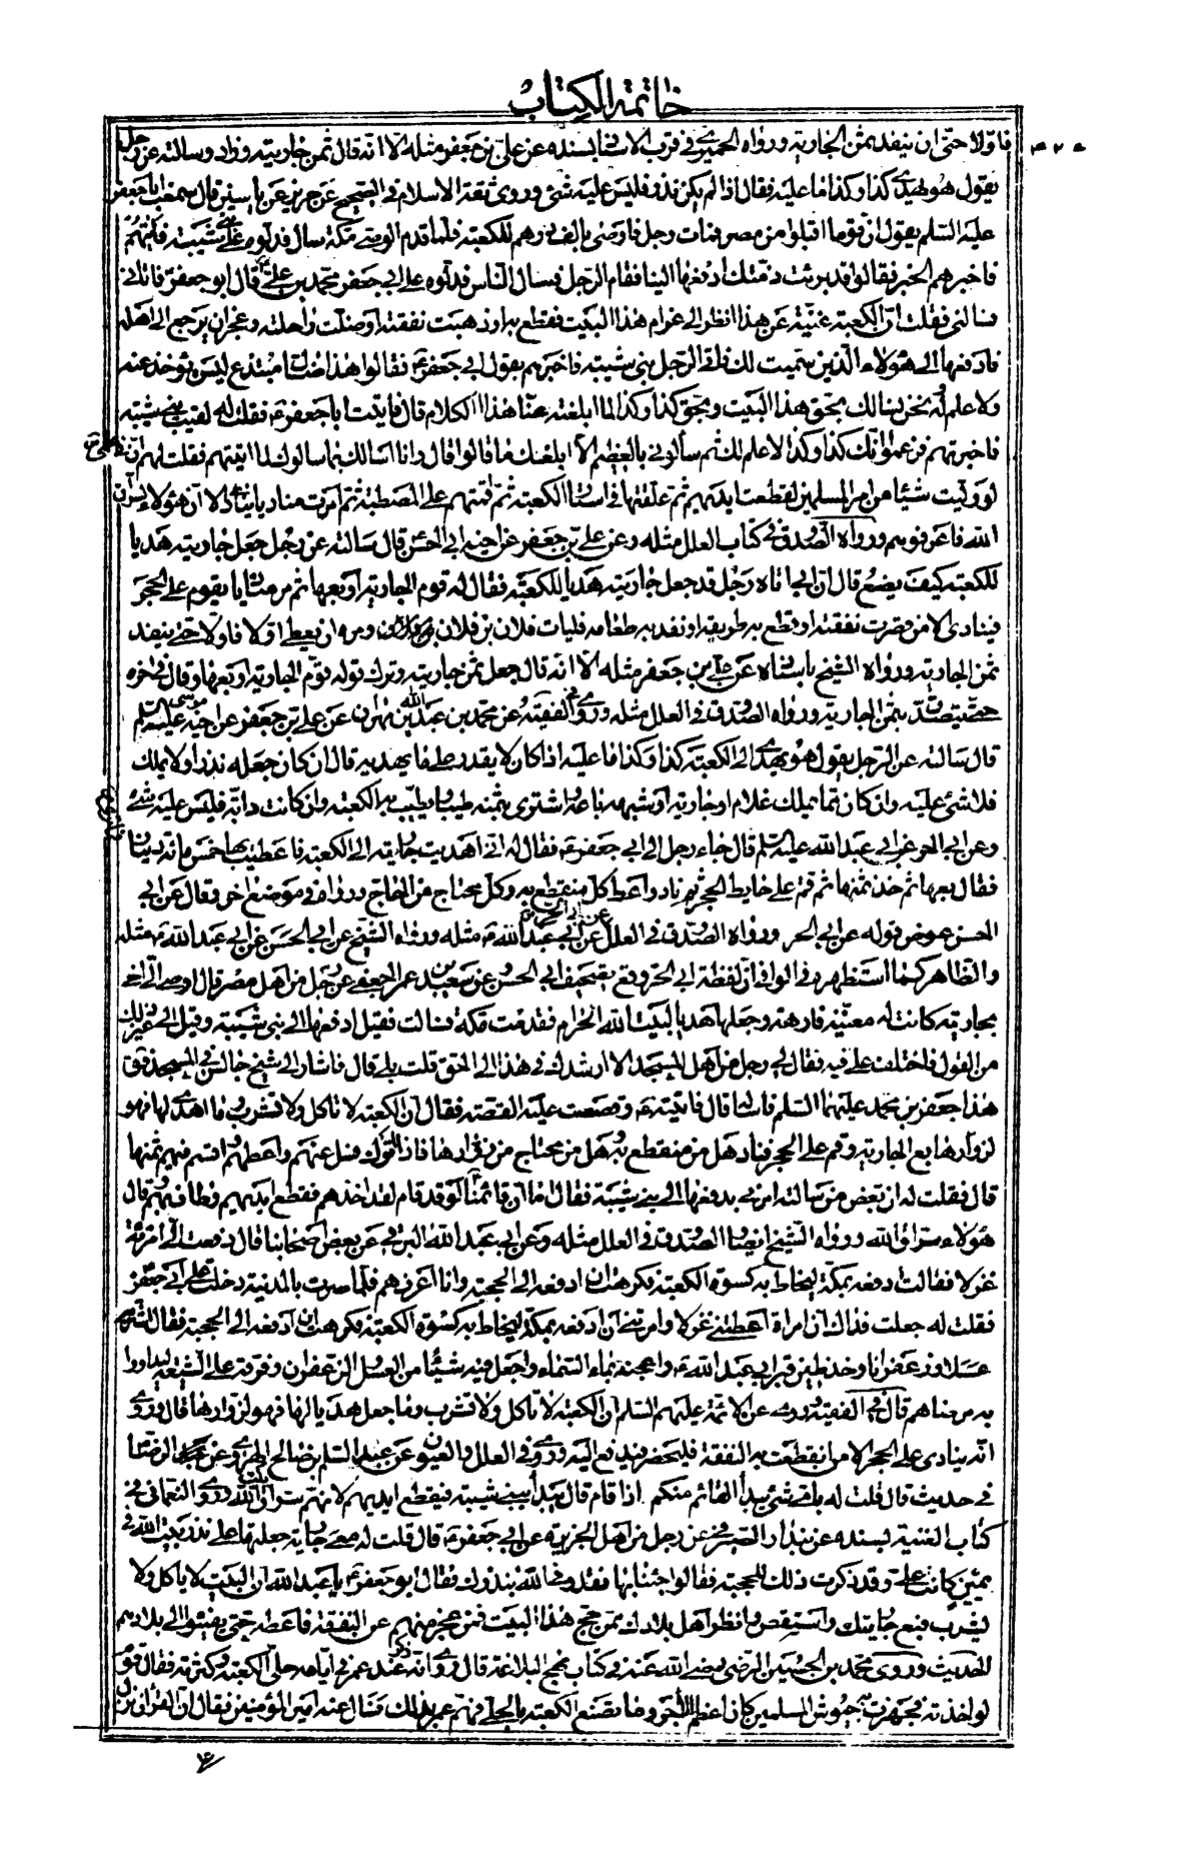 خاتمة الكتاب
فاولا حتى ان ينفد ثمن الجارية ورواه الحميرى فى قرب الاسناد بسنده عن على بن جعفر مثله الا انه قال ثمن جاريته وزاد وسالته عن رجل
يقول هو يهدى كذا وكذا ما عليه فقال اذا لم يكن نذر فليس عليه شئ وروى ثقة الاسلام فى الصحيح عن حريز عن ياسين قال سمعت ابا جعفر
عليه السلم يقول ان قوما اقبلوا من مصر فمات رجل فاوصى بالف درهم للكعبة فلما قدم الوصى مكة سال فدلوه على بنى شيبة فاتاهم
فاخبرهم الخبر فقالوا قد برئت ذمتك ادفعها الينا فقام الرجل فسال الناس فدلوه على ابى جعفر محمد بن على قال ابو جعفر فاتانى
فسالنى فقلت ان الكعبة غنية عن هذا انظر الى من ام هذا البيت فقطع به او ذهبت نفقته او ضلت راحلته وعجز ان يرجع الى اهله
فادفعها الى هؤلاء الذين سميت لك فاتى الرجل بنى شيبة فاخبرهم بقول ابى جعفر فقالوا هذا ضال مبتدع ليس يؤخذ عنه
ولا علم له نحن نسالك بحق هذا البيت وبحق كذا وكذا لما ابلغته عنا هذا الكلام قال فاتيت ابا جعفر فقلت له لقيت بنى شيبة
فاخبرتهم فزعموا انك كذا وكذا لا علم لك ثم سألونى بالعظيم الا ابلغك ما قالوا قال وانا اسالك بما سالوك لما اتيتهم فقلت لهم ان
لو وليت شيئا من امر المسلمين لقطعت ايديهم ثم علقتها فى استار الكعبة ثم اقمتهم على المصطبة ثم امرت مناديا ينادى الا ان هؤلاء سراق
الله فاعرفوهم ورواه الصدوق فى كتاب العلل مثله وعن على بن جعفر عن اخيه ابى الحسن قال سالته عن رجل جعل جاريته هديا
للكعبة كيف يصنع قال ان ابى اتاه رجل قد جعل جاريته هديا للكعبة فقال له قوم الجارية او بعها ثم مر مناديا يقوم على الحجر
فينادى الا من قصرت نفقته او قطع به طريقه او نفد به طعامه فليات فلان بن فلان ومره ان يعطى اولا فاولا حتى ينفد
ثمن الجارية ورواه الشيخ باسناده عن على بن جعفر مثله الا انه قال جعل ثمن جاريته وترك قوله قوم الجارية او بعها وقال فى اخره
حتى يتصدق بثمن الجارية ورواه الصدوق فى العلل مثله وروى فى الفقيه عن محمد بن عبد الله بن مهران عن على بن جعفر عن اخيه موسى عليه السلم
قال سالته عن الرجل يقول هو يهدى الى الكعبة كذا وكذا ما عليه اذا كان لا يقدر على ما يهديه قال ان كان جعله نذرا ولا يملك
فلا شئ عليه وان كان مما يملك غلام او جارية او شبهه باعه واشترى بثمنه طيبا يطيب به الكعبة وان كانت دابة فليس عليه شئ
وعن ابى الحر عن ابى عبد الله عليه السلم قال جاء رجل الى ابى جعفر فقال له انى اهديت جارية الى الكعبة فاعطيت بها خمس مائة دينار
فقال بعها ثم خذ ثمنها ثم قم على حايط الحجر ثم ناد واعط كل منقطع به وكل محتاج من الحاج ورواه فى موضع اخر وقال عن ابى
الحسن عوض قوله عن ابى الحر ورواه الصدوق فى العلل عن ابى الحر عن ابى عبد الله مثله ورواه الشيخ عن ابى الحسن عن ابى عبد الله مثله
والظاهر كما استظهره فى الوافى ان لفظة ابى الحر وقع بتصحيف ابى الحسن وعن سعيد بن عمر الجعفى عن رجل من اهل مصر قال اوصى الى اخى
بجارية كانت له مغنية فارهة وجعلها هديا لبيت الله الحرام فقدمت مكة فسالت فقيل ادفعها الى بنى شيبة وقيل لى غير ذلك
من القول فاختلف على فيه فقال لى رجل من اهل المسجد الا ارشدك فى هذا الى الحق قلت بلى قال فاشار الى شيخ جالس فى المسجد فقال
هذا جعفر بن محمد عليهما السلم فاساله قال فاتيته وقصصت عليه القصة فقال ان الكعبة لا تاكل ولا تشرب وما اهدى لها فهو
لزوارها بع الجارية وقم على الحجر فناد هل من منقطع به وهل من محتاج من زوارها فاذا اتوك فسل عنهم واعطهم واقسم فيهم ثمنها
قال فقلت له ان بعض من سالته امرنى بدفعها الى بنى شيبة فقال اما ان قائمنا لو قد قام لقد اخذهم فقطع ايديهم وطاف بهم قال
هؤلاء سراق الله ورواه الشيخ ايضا والصدوق فى العلل مثله وعن ابى عبد الله البرقى عن بعض اصحابنا قال دفعت الى امرئة
غزلا فقالت ادفعه بمكة ليخاط به كسوة الكعبة فكرهت ان ادفعه الى الحجبة وانا اعرفهم فلما صرت بالمدينة دخلت على ابى جعفر
فقلت له جعلت فداك ان امراة اعطتنى غزلا وامرتنى ان ادفعه بمكة ليخاط به كسوة الكعبة فكرهت ان ادفعه الى الحجبة فقال اشتر به
عسلا وزعفرانا وخذ طين قبر ابى عبد الله واعجنه بماء السماء واجعل فيه شيئا من العسل والزعفران وفرقه على الشيعة ليداووا
به مرضاهم قال فى الفقيه وروى عن الائمة عليهم السلم ان الكعبة لا تاكل ولا تشرب وما جعل هديا لها فهو لزوارها قال وروى
انه ينادى على الحجر الا من انقطعت به النفقة فليحضر فيدفع اليه وروى فى العلل والعيون عن عبد السلم بن صالح الهروى عن الرضا
فى حديث قال قلت له باى شئ يبدأ القائم منكم اذا قام قال يبدأ ببنى شيبة فيقطع ايديهم لانهم سراق بيت الله وروى النعمانى فى
كتاب الغيبة بسنده عن بندار الصيرفى عن رجل من اهل الجزيرة عن ابى جعفر قال قلت له معى جارية جعلتها على نذر لبيت الله فى
يمين كانت على وقد ذكرت ذلك للحجبة فقالوا جئنا بها فقد وفى الله بنذرك فقال ابو جعفر يا عبد الله ان البيت لا ياكل ولا
يشرب فبع جاريتك واستقص وانظر اهل بلادك ممن حج هذا البيت فمن عجز منهم عن النفقة فاعطه حتى يفيئوا الى بلادهم
الحديث وروى محمد بن الحسين الرضى رضى الله عنه فى كتاب نهج البلاغة قال روى انه ذكر عند عمر فى ايامه حلى الكعبة وكثرته فقال قوم
لو اخذته فجهزت به جيوش المسلمين كان اعظم للاجر وما تصنع الكعبة بالحلى فهم عمر بذلك وسال عنه امير المؤمنين فقال ان القران نزل